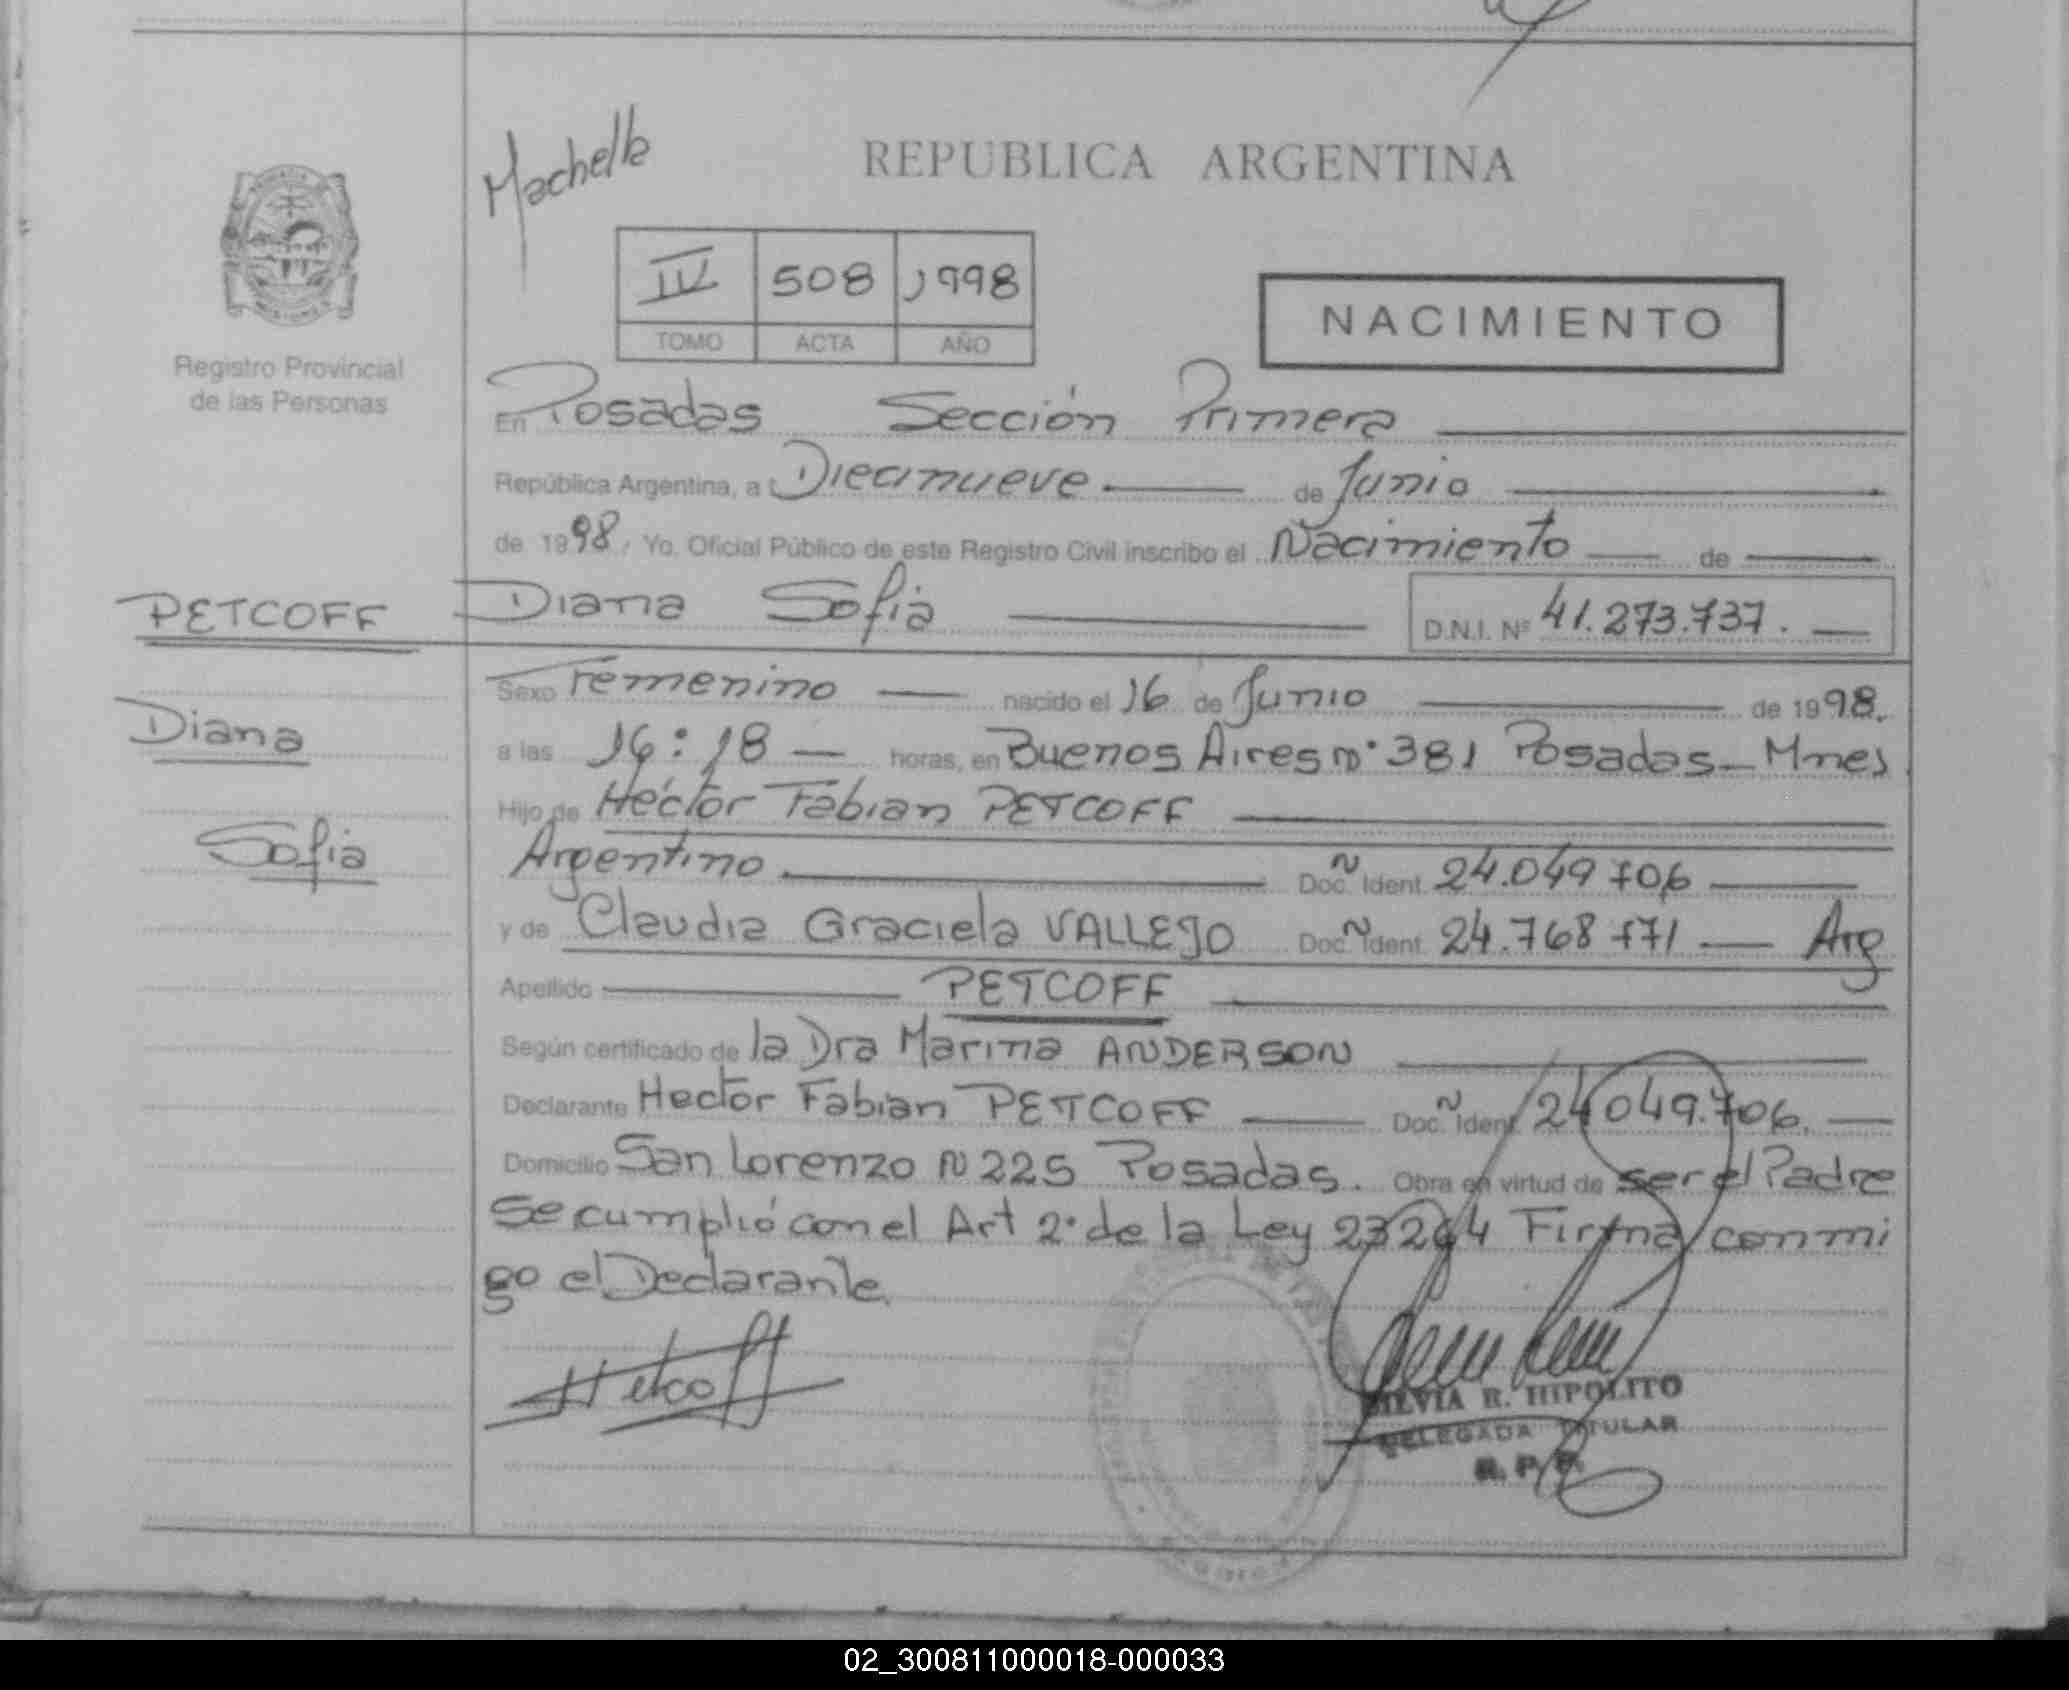 Machelle
REPUBLICA ARGENTINA
IV 508 1998
TOMO ACTA AÑO
NACIMIENTO
Registro Provincial
de las Personas
En Posadas Sección Primera
República Argentina, a Diecinueve de Junio
de 1998. Yo, Oficial Público de este Registro Civil inscribo el Nacimiento de
PETCOFF Diana Sofia D.N.I. Nº 41.273.737.
Sexo Femenino nacido el 16 de Junio de 1998.
Diana
a las 16:18 horas, en Buenos Aires nº 381 Posadas - Mnes
Hijo de Héctor Fabian PETCOFF
Sofia
Argentino Doc. Ident. 24.049.706
y de Claudia Graciela VALLEJO Doc. Ident. 24.768.771 Arg
Apellido PETCOFF
Según certificado de la Dra Marina ANDERSON
Declarante Hector Fabian PETCOFF Doc. Ident. 24.049.706.
Domicilio San Lorenzo N 225 Posadas. Obra en virtud de ser el Padre
Se cumplió con el Art 2º de la Ley 23264 Firma conmi
go el Declarante.
SILVIA R. HIPOLITO
DELEGADA TITULAR
R. P. P.
02_300811000018-000033